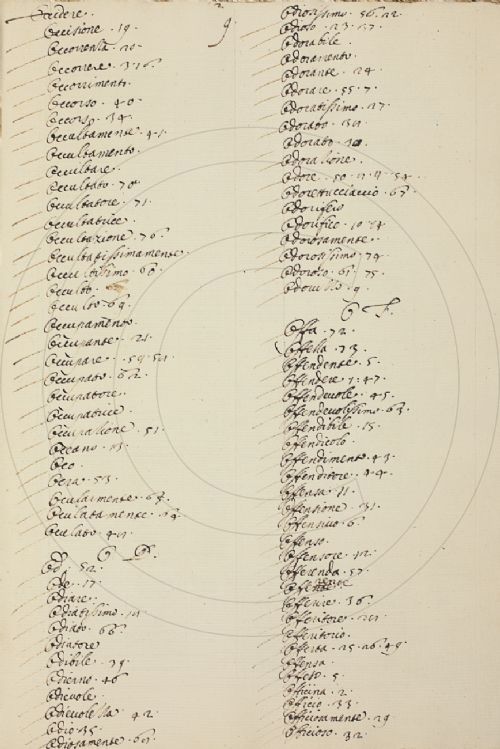 Occisione. 19.
Occorrere
Occorrimento
Occorso. 40.
Occorso. 34.
Occultamente. 41.
Occultamento.
Occultare.
Occultato. 70.
Occultatore. 71.
Occultatrice.
Occultazione. 76.
Occultatissimamente.
Occultissimo.
Occulto.
Occulto. 69.
Occupamento.
Occupante. 21.
Occupare. 59.
Occupato. 62.
Occupatore.
Occupatrice.
Occupazione. 51.
Oceano. 13.
Oculatamente.
Oculato.
O D.
Od. 52.
Ode. 17.
Odiare.
Odiatissimo.
Odiato. 66.
Odiatore
Odibile. 39.
Odierno. 46
Odievole.
Odio 35.
Odiosamente. 60.
9.
Odiosissimo. 56. 22.
Odioso. 23. 27.
Odorabile.
Odoramento.
Odorante. 24.
Odorare. 55. 7.
Odoratissimo. 27.
Odorato.
Odorato.
Odorazione.
Odore. 50.
Odorettucciaccio. 67.
Odorifero
Odorifico.
Odorosamente.
Odorosissimo. 74.
Odoroso. 61. 75.
O F.
Offa. 72.
Offella. 73.
Offendente. 5.
Offendere. 1. 47.
Offendevole. 45.
Offendevolissimo. 63.
Offendibile. 15.
Offendicolo.
Offendimento. 43.
Offenditore. 44.
Offensa. 11.
Offensione. 31.
Offensivo. 6.
Offenso.
Offensore. 12.
Offerenda. 57.
Offerire. 36.
Offeritore.
Offertorio.
Offerta. 25. 26. 49.
Offesa
Offeso. 5.
Officina. 2.
Officio. 33.
Officiosamente. 29.
Officioso. 32.